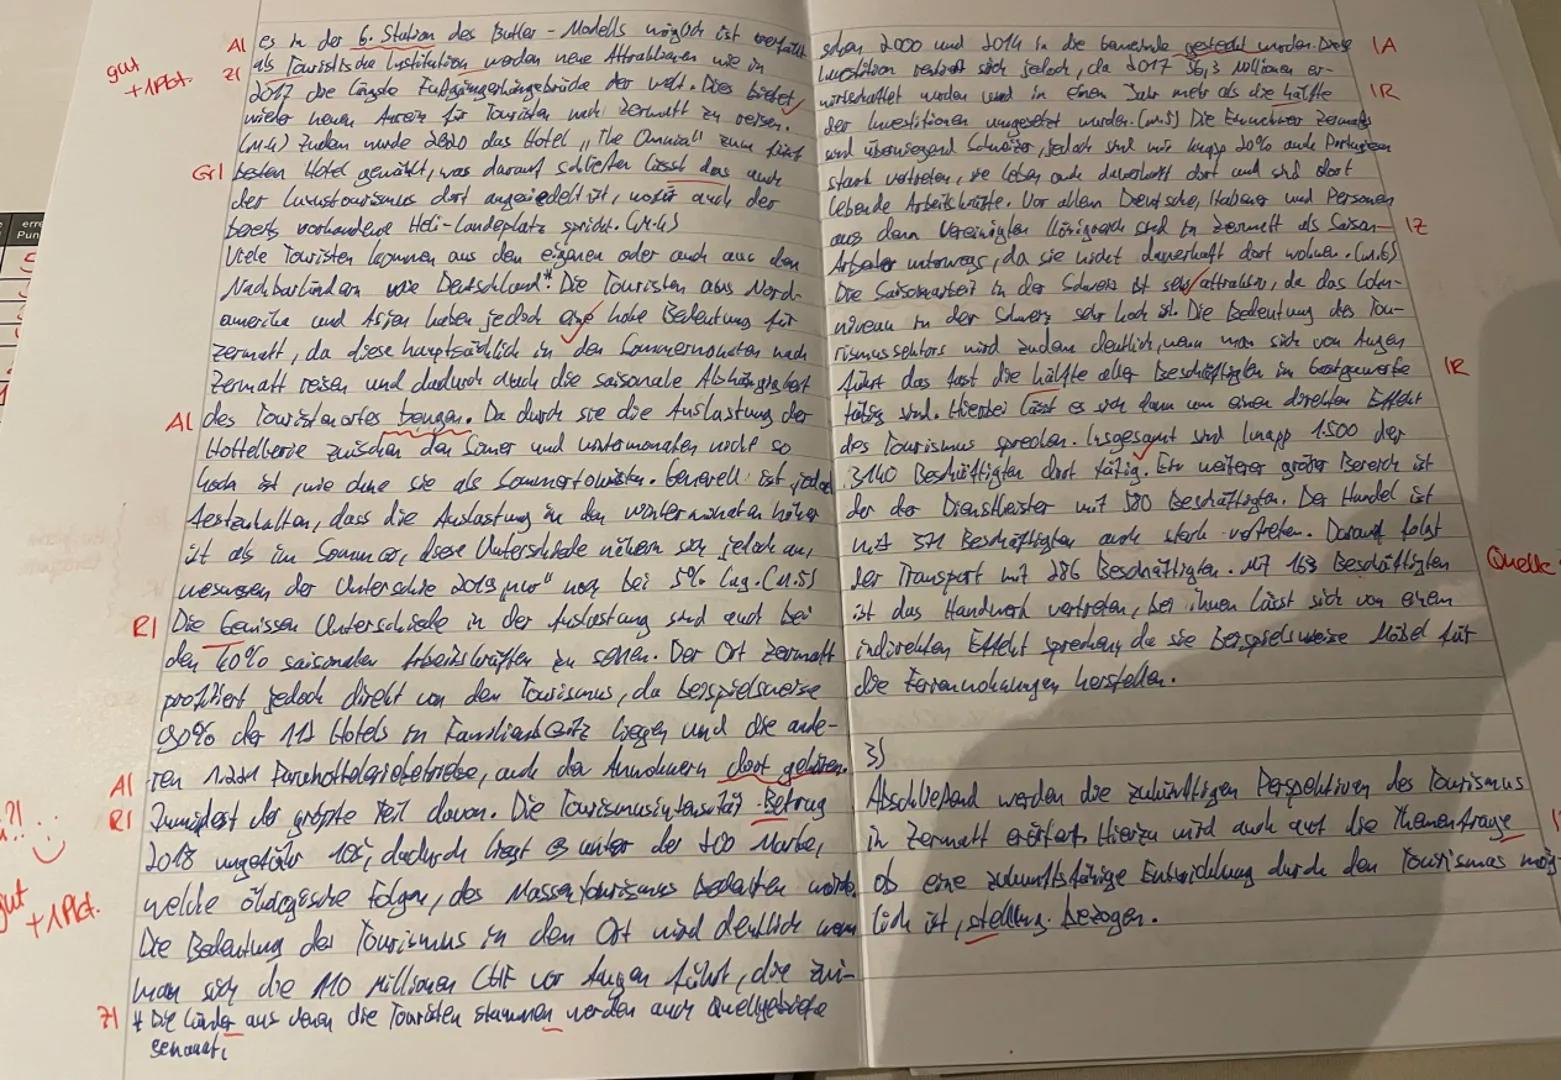 es in der 6. Station des Butler-Modells möglich ist
als Touristische Institution werden neue Attraktionen wie in
2017 die längste Fußgängerhängebrücke der Welt. Dies bietet
wieder neuen Anreiz für Touristen nach Zermatt zu reisen.
(M.4) Zudem wurde 2020 das Hotel "The Omnia" zum fünf
besten Hotel gewählt, was darauf schließen lässt das auch
der Luxustourismus dort angesiedelt ist, wofür auch der
bereits vorhandene Heli-Landeplatz spricht. (M.4)
Viele Touristen kommen aus dem eigenen oder auch aus den
Nachbarländern wie Deutschland.* Die Touristen aus Nord-
amerika und Asien haben jedoch eine hohe Bedeutung für
Zermatt, da diese hauptsächlich in den Sommermonaten nach
Zermatt reisen und dadurch auch die saisonale Abhängigkeit
des Touristenortes beugen. Da durch sie die Auslastung der
zwischen den Somer und wintermonaten nicht so
hoch ist, wie ohne sie als Sommertouristen. Generell ist jedoch
festzuhalten, dass die Auslastung in den wintermonaten höher
ist als im Sommer, diese Unterschiede nähern sich jedoch an,
weswegen der Unterschie 2019 "nur" noch bei 5% lag. (M.5)
Die Gewissen Unterschiede in der Auslastung sind auch bei
den 40% saisonalen Arbeitskräften zu sehen. Der Ort Zermatt
profitiert jedoch direkt von dem Tourismus, da beispielsweise
90% der Hotels in Familienbesitz liegen und die ande-
ren auch den Anwohnern dort gehören.
Zumindest der größte Teil davon. Die Tourismusintensität Betrug
2018 ungefähr dadurch liegt es unter der Marke,
welche ökologische Folgen, des Massentourismus bedeuten würde.
Die Bedeutung des Tourismus in dem Ort wird deutlich wenn
man sich die 110 Millionen CHF vor Augen führt, die zwi-
* Die Länder aus denen die Touristen stammen werden auch Quellgebiete
genannt.
schen 2000 und 2014 in die Gemeinde gesteckt worden. Diese
Investition rentiert sich jedoch, da 2017 56,3 Millionen er-
wirtschaftet wurden und in einem Jahr mehr als die hälfte
der Investitionen umgesetzt wurden. (M.5) Die Einwohner Zermatts
sind überwiegend Schweizer, jedoch sind mit knapp 20% auch Portugiesen
stark vertreten, sie leben auch dauerhaft dort und sind dort
lebende Arbeitskräfte. Vor allem Deutsche, Italiener und Personen
aus dem Vereinigten Königreich sind in Zermatt als Saison-
Arbeiter unterwegs, da sie nicht dauerhaft dort wohnen. (M.6)
Die Saisonarbeit in der Schweiz ist sehr attraktiv, da das Lohn-
niveau in der Schweiz sehr hoch ist. Die Bedeutung des Tou-
rismussektors wird zudem deutlich, wenn man sich vor Augen
führt das fast die hälfte aller Beschäftigten im Gastgewerbe
tätig sind. Hierbei lässt es sich dann von einem direkten Effekt
des Tourismus sprechen. Insgesamt sind knapp 1.500 der
3140 Beschäftigten dort tätig. Ein weiterer großer Bereich ist
der der Dienstleister mit 580 Beschäftigten. Der Handel ist
mit 371 Beschäftigten auch stark vertreten. Darauf folgt
der Transport mit 286 Beschäftigten. Mit 163 Beschäftigten
ist das Handwerk vertreten, bei ihnen lässt sich von einem
indirekten Effekt sprechen, da sie beispielsweise Möbel für
die Ferienwohnungen herstellen.
3)
Abschließend werden die zukünftigen Perspektiven des Tourismus
in Zermatt erörtert. Hierzu wird auch auf die Themenfrage
ob eine zukunftsfähige Entwicklung durch den Tourismus mög-
lich ist, stellung bezogen.
gut
+1Pkt.
A|
Z|
Gr|
A|
R|
A|
R|
gut
+1Pkt.
Z|
|A
|R
|Z
|R
Quelle
erre
Pun